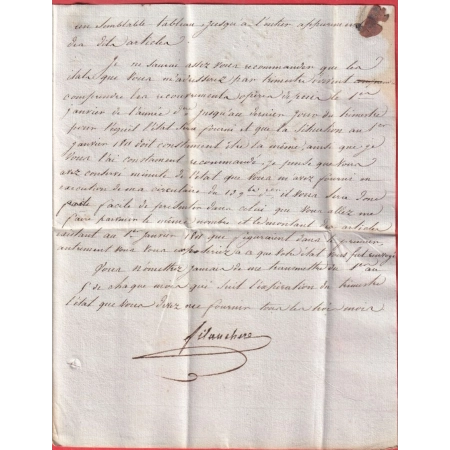 un semblable tableau jusqu'à l'entier apurement
des dits articles
Je ne saurais assez vous recommander que les
états que vous m'adressez par trimestre doivent
comprendre les recouvrements opérés depuis le 1er
janvier de l'année jusqu'au dernier jour du trimestre
pour lequel l'état sera fourni et que la situation au 1er
janvier 1811 doit constamment être la même, ainsi que je
vous l'ai constamment recommandé. je pense que vous
avez conservé minute de l'état que vous m'avez fourni en
exécution de ma circulaire du 12 9bre il vous sera donc
facile de présenter dans celui que vous allez me
faire parvenir le même nombre et le montant des articles
existant au 1er janvier 1811 que figuraient dans le premier,
autrement vous vous exposeriez à ce que votre état vous fut renvoyé
Vous n'omettez jamais de me transmettre du 1er au
5 de chaque mois qui suit l'expiration du trimestre
l'état que vous devez me fournir tous les trois mois